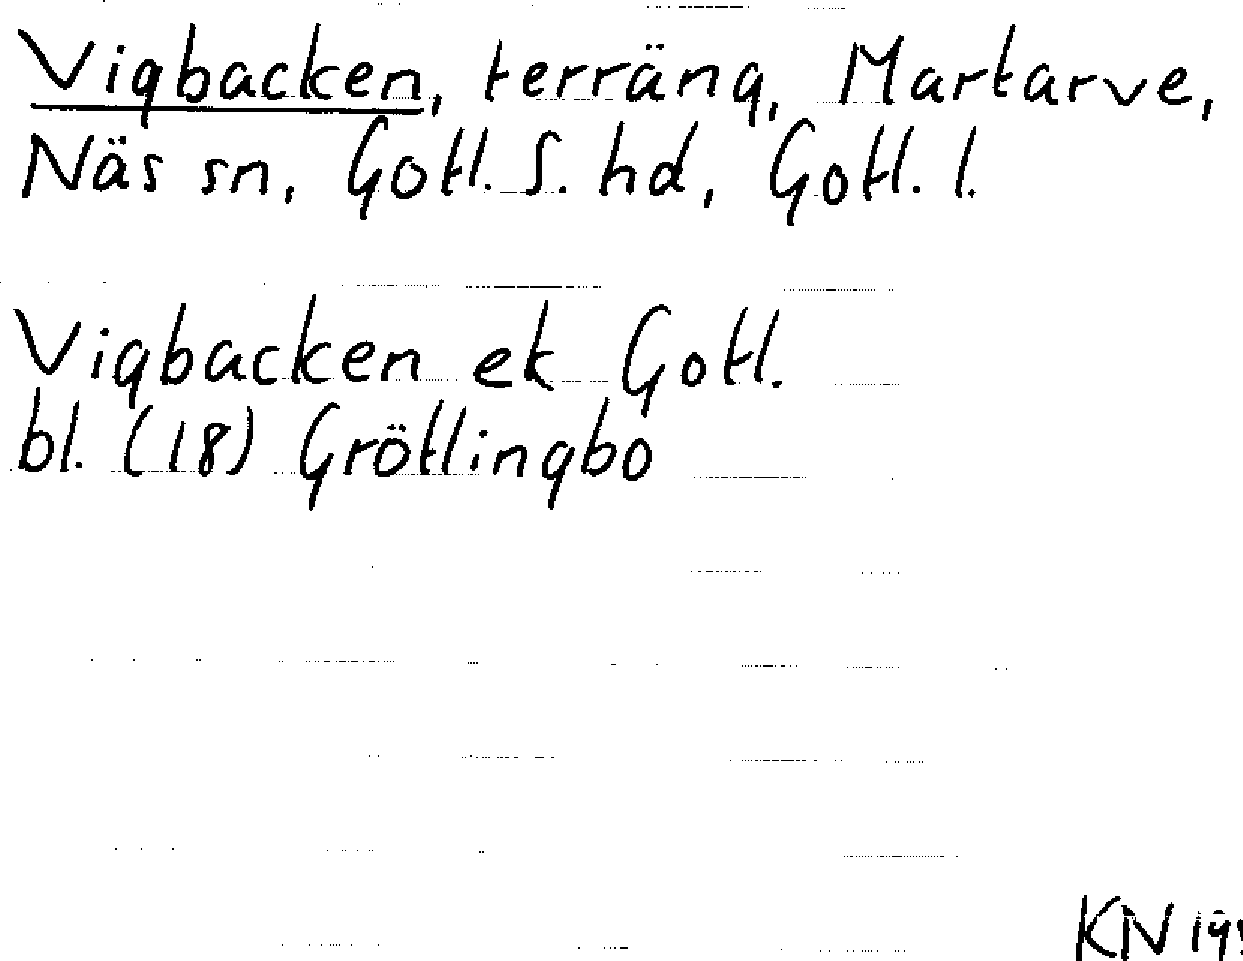 Vigbacken, terräng, Martarve,
Näs sn, Gotl. S. hd, Gotl. l.
Vigbacken ek Gotl.
bl. (18) Grötlingbo
KN